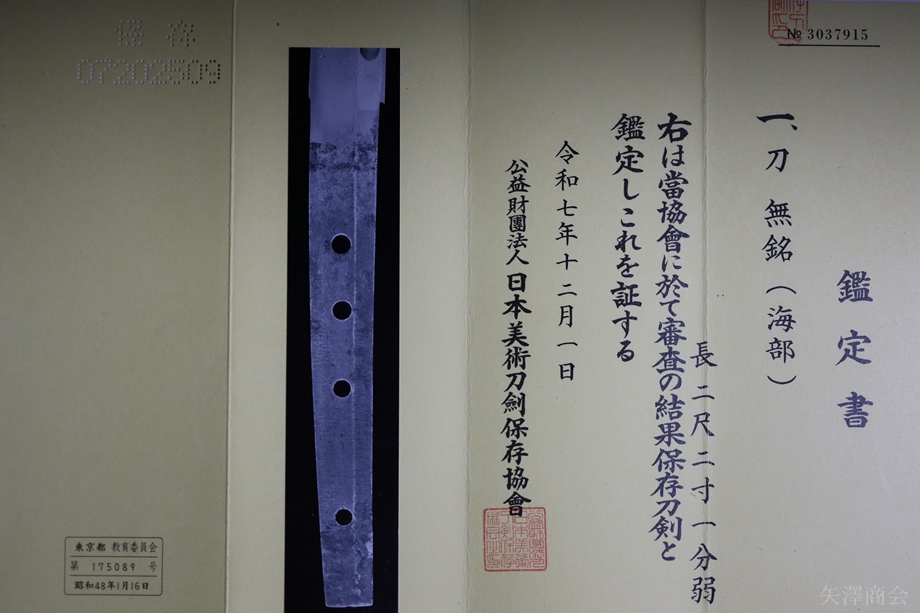 № 3037915
鑑定書
一、刀 無銘(海部)
長 二尺二寸一分弱
右は當協會に於て審査の結果保存刀剣と
鑑定しこれを証する
令和七年十二月一日
公益財團法人 日本美術刀劍保存協會
保存
07202509
東京都 教育委員会
第 175089 号
昭和48年1月16日
矢澤商会